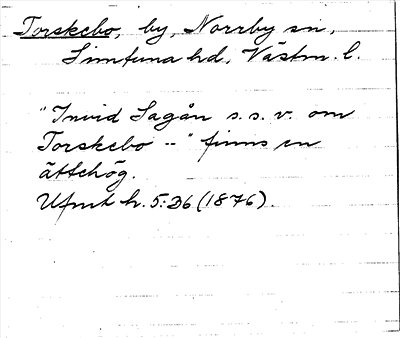 Torskebo, by, Norrby sn,
Simtuna hd, Västm. l.
"Invid Sagån s.s.v. om
Torskebo --" finns en
ättehög.
Ufmt h. 5:36 (1876).